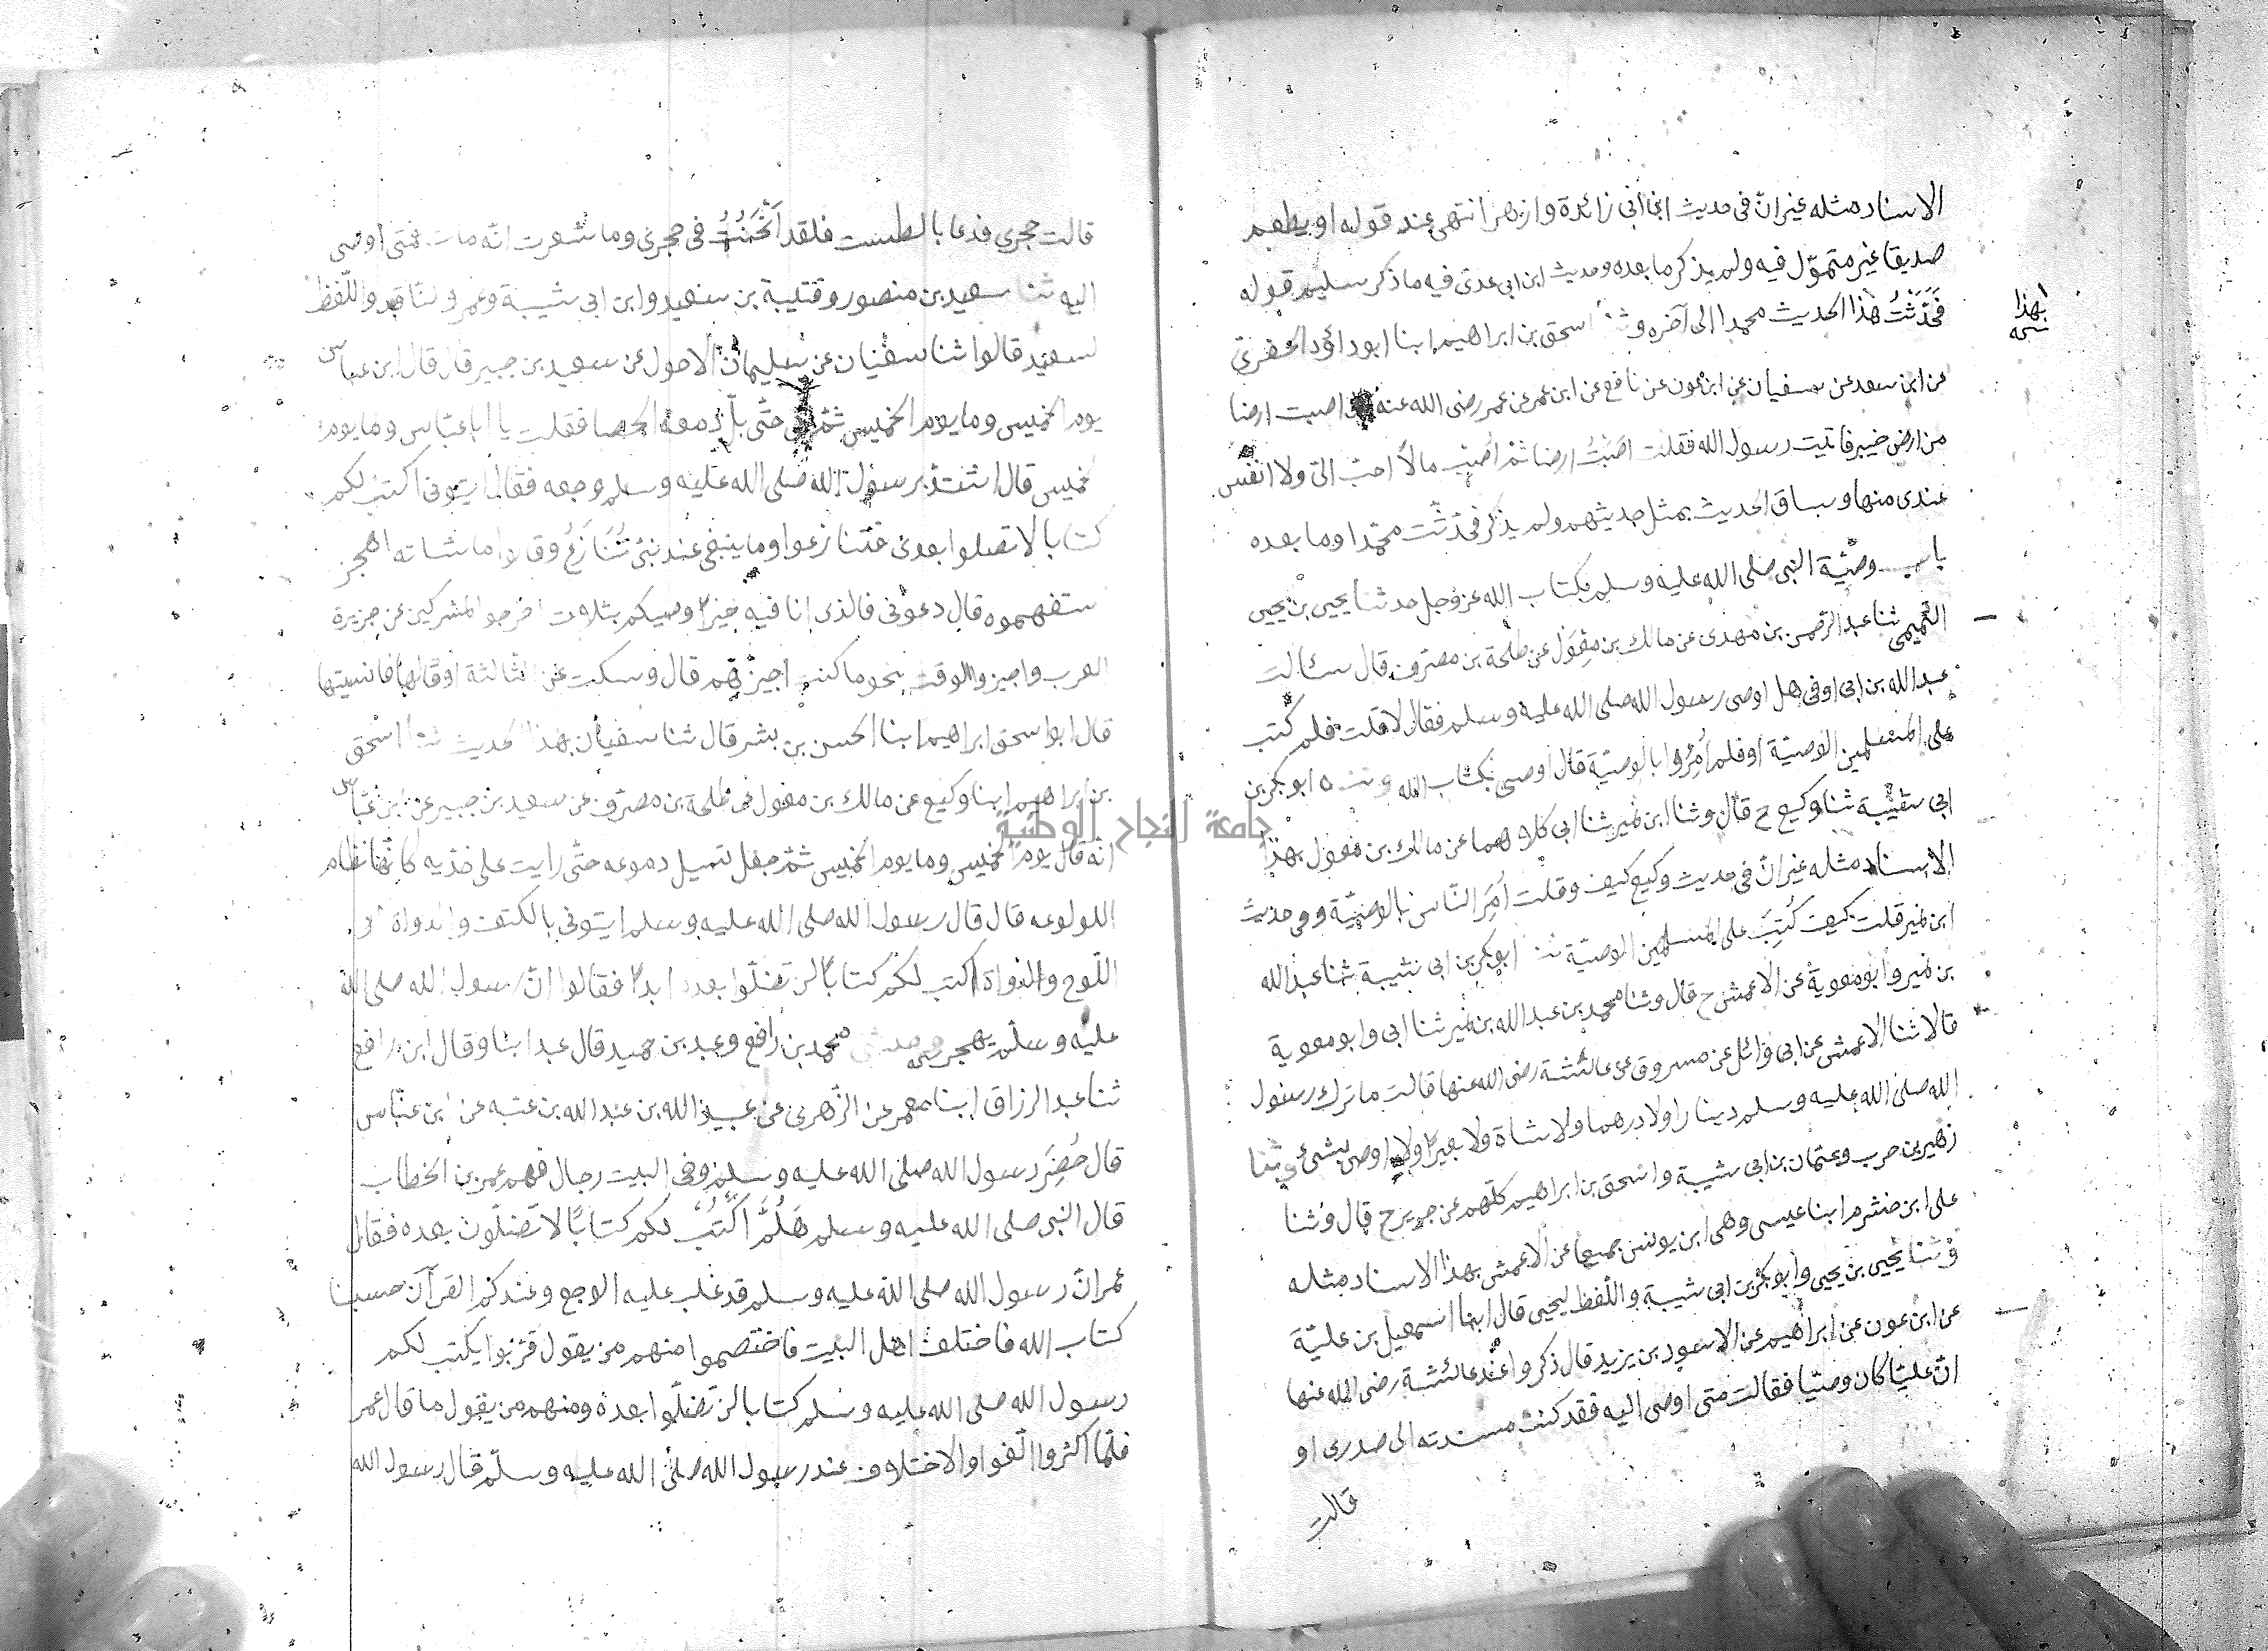 الاسناد مثله غير ان في حديث ابن ابي زائدة وازهر انتهى عند قوله او يطعم
صديقا غير متموّل فيه ولم يذكر ما بعده وحديث ابن ابي عدي فيه ما ذكر سليم قوله
فَحَدَّثْتُ هذا الحديث محمدا الى آخره وثنا اسحق بن ابراهيم ابنا ابو داؤد الحفري
بهذا
عن ابن سعد عن سفيان عن ابن عون عن نافع عن ابن عمر عن عمر رضى الله عنه اصبت ارضا
من ارض خيبر فاتيت رسول الله فقلت اصَبْتُ ارضا لم اُصب مالاً احبّ اليّ ولا انفس
عندى منها وساق الحديث بمثل حديثهم ولم يذكر فحدّثت محمّدا وما بعده
باب وصيّة النبى صلى الله عليه وسلم بكتاب الله عز وجل حدثنا يحيى بن يحيى
التميمى ثنا عبد الرّحمن بن مهدى عن مالك بن مِغْوَل عن طلحة بن مصرّف قال سئالت
عبد الله بن ابى اوفى هل اوصى رسول الله صلى الله عليه وسلم فقال لا قلت فلم كُتب
على المسلمين الوصيّة او فلم اُمِرُوا بالوصيّة قال اوصى بكتاب الله وثناه ابو بكر بن
ابى شيبة ثنا وكيع ح قال وثنا ابن نمير ثنا ابى كلاهما عن مالك بن مغول بهذا
الاسناد مثله غير انّ فى حديث وكيع كيف وقلت اُمِرَ النّاس بالوصيّة وفى حديث
ابن نمير قلت كيف كُتِبَ على المسلمين الوصيّة ثنا ابو بكر بن ابى شيبة ثنا عبد الله
بن نمير وابو معوية عن الاعمش ح قال وثنا محمد بن عبد الله بن نمير ثنا ابى وابو معوية
قالا ثنا الاعمش عن ابى وائل عن مسروق عن عائشة رضى الله عنها قالت ما ترك رسول
الله صلى الله عليه وسلم دينارا ولا درهما ولا شاة ولا بعيرا ولا اوصى بشئ وثنا
زهير بن حرب وعثمان بن ابى شيبة واسحق بن ابراهيم كلّهم عن جرير ح قال وثنا
على ابن خشرم ابنا عيسى وهى ابن يونس جميعا عن الاعمش بهذا الاسناد مثله
وثنا يحيى بن يحيى وابو بكر بن ابى شيبة واللّفظ ليحيى قال ابنا اسمعيل بن عليّة
عن ابن عون عن ابراهيم عن الاسود بن يزيد قال ذكروا عند عائشة رضى الله عنها
انّ عليّا كان وصيّا فقالت متى اوصى اليه فقد كنت مسندته الى صدرى او
قالت
قالت حجرى فدعا بالطست فلقد اَنْخَنَثَ فى حجرى وما شعرت انّه مات فمتى اوصى
اليه ثنا سعيد بن منصور وقتيبة بن سعيد وابن ابى شيبة وعمرو النّاقد واللّفظ
لسعيد قالوا ثنا سفيان عن سليمان الاحول عن سعيد بن جبير قال قال ابن عباس
يوم الخميس وما يوم الخميس ثمّ بكى حتّى بلّ دمعه الحصا فقلت يا ابا عبّاس وما يوم
لخميس قال اشتدّ برسول الله صلى الله عليه وسلم وجعه فقال ايتونى اكتب لكم
كتابا لا تضلوا بعدى فتنازعوا وما ينبغى عند نبىّ تَنَازُع وقالوا ما شانه اهجر
ستفهموه قال دعونى فالذى انا فيه خيرا وصيكم بثلاث اخرجوا المشركين عن جزيرة
العرب واجيزوا الوفد بنحو ما كنت اجيزهم قال وسكت عن الثالثة او قالها فانسيتها
قال ابو اسحق ابراهيم ابنا الحسن بن بشر قال ثنا سفيان بهذا الحديث ثنا اسحق
بن ابراهيم ابنا وكيع عن مالك بن مغول عن طلحة بن مصرّف عن سعيد بن جبير عن ابن عبّاس
جامعة النجاح الوطنية
انّه قال يوم الخميس وما يوم الخميس ثمّ جعل تسيل دموعه حتّى رايت على خدّيه كانّها نظام
اللولوء قال قال رسول الله صلى الله عليه وسلم ايتونى بالكتف والدواة او
اللّوح والدواة اكتب لكم كتابا لن تضلّوا بعده ابدا فقالوا انّ رسول الله صلى الله
عليه وسلّم يهجر وحدثنى محمد بن رافع وعبد بن حميد قال عبد ابنا وقال ابن رافع
ثنا عبد الرزاق ابنا معمر عن الزّهرى عن عبيد الله بن عبد الله بن عتبه عن ابن عبّاس
قال حُضِرَ رسول الله صلى الله عليه وسلم وفى البيت رجال فهم عمر بن الخطاب
قال النبى صلى الله عليه وسلم هَلُمَّ اَكْتُبْ لكم كتابًا لا تضلّون بعده فقال
عمر انّ رسول الله صلى الله عليه وسلم قد غلب عليه الوجع وعندكم القرآن حسبنا
كتاب الله فاختلف اهل البيت فاختصموا منهم من يقول قرّبوا يكتب لكم
رسول الله صلى الله عليه وسلم كتابا لن تضلّوا بعده ومنهم من يقول ما قال عمر
فلمّا اكثروا اللّغو والاختلاف عند رسول الله صلّى الله عليه وسلّم قال رسول الله